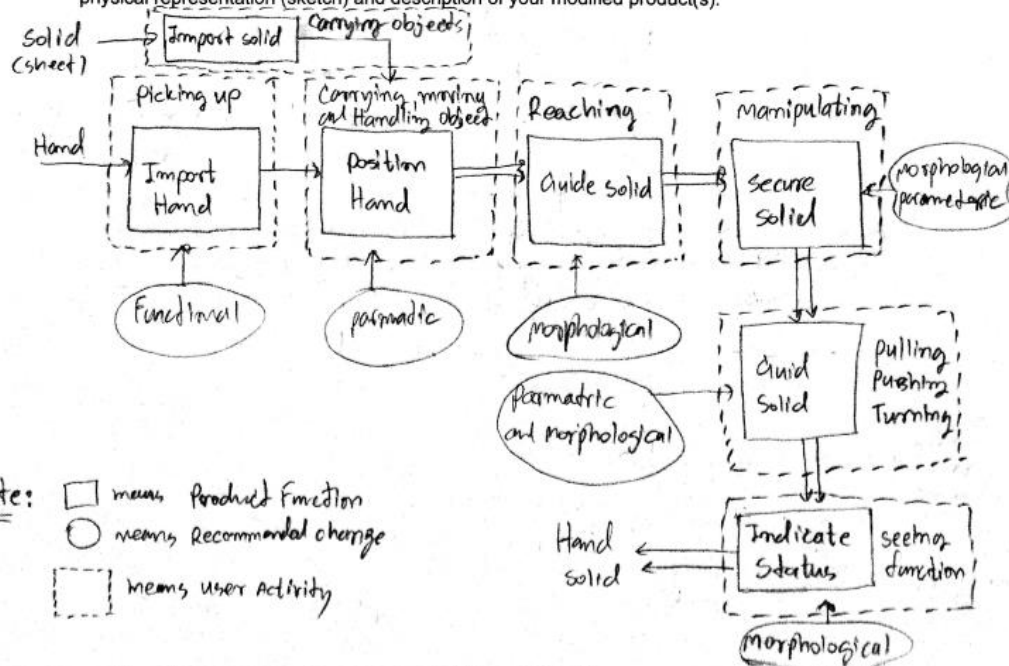 physical representation (sketch) and description of your modified product(s).
Solid
(sheet)
Import solid
Carrying objects
Picking up
Hand
Import
Hand
Functional
Carrying, moving
and Handling object
Position
Hand
parmadic
Reaching
Guide solid
morphological
Manipulating
Secure
Solid
morphological
parametric
Guid
Solid
Pulling
Pushing
Turning
Parmatric
and Morphological
Indicate
Status
seeing
function
Hand
Solid
morphological
te:
means Product Function
means Recommended change
means User Activity